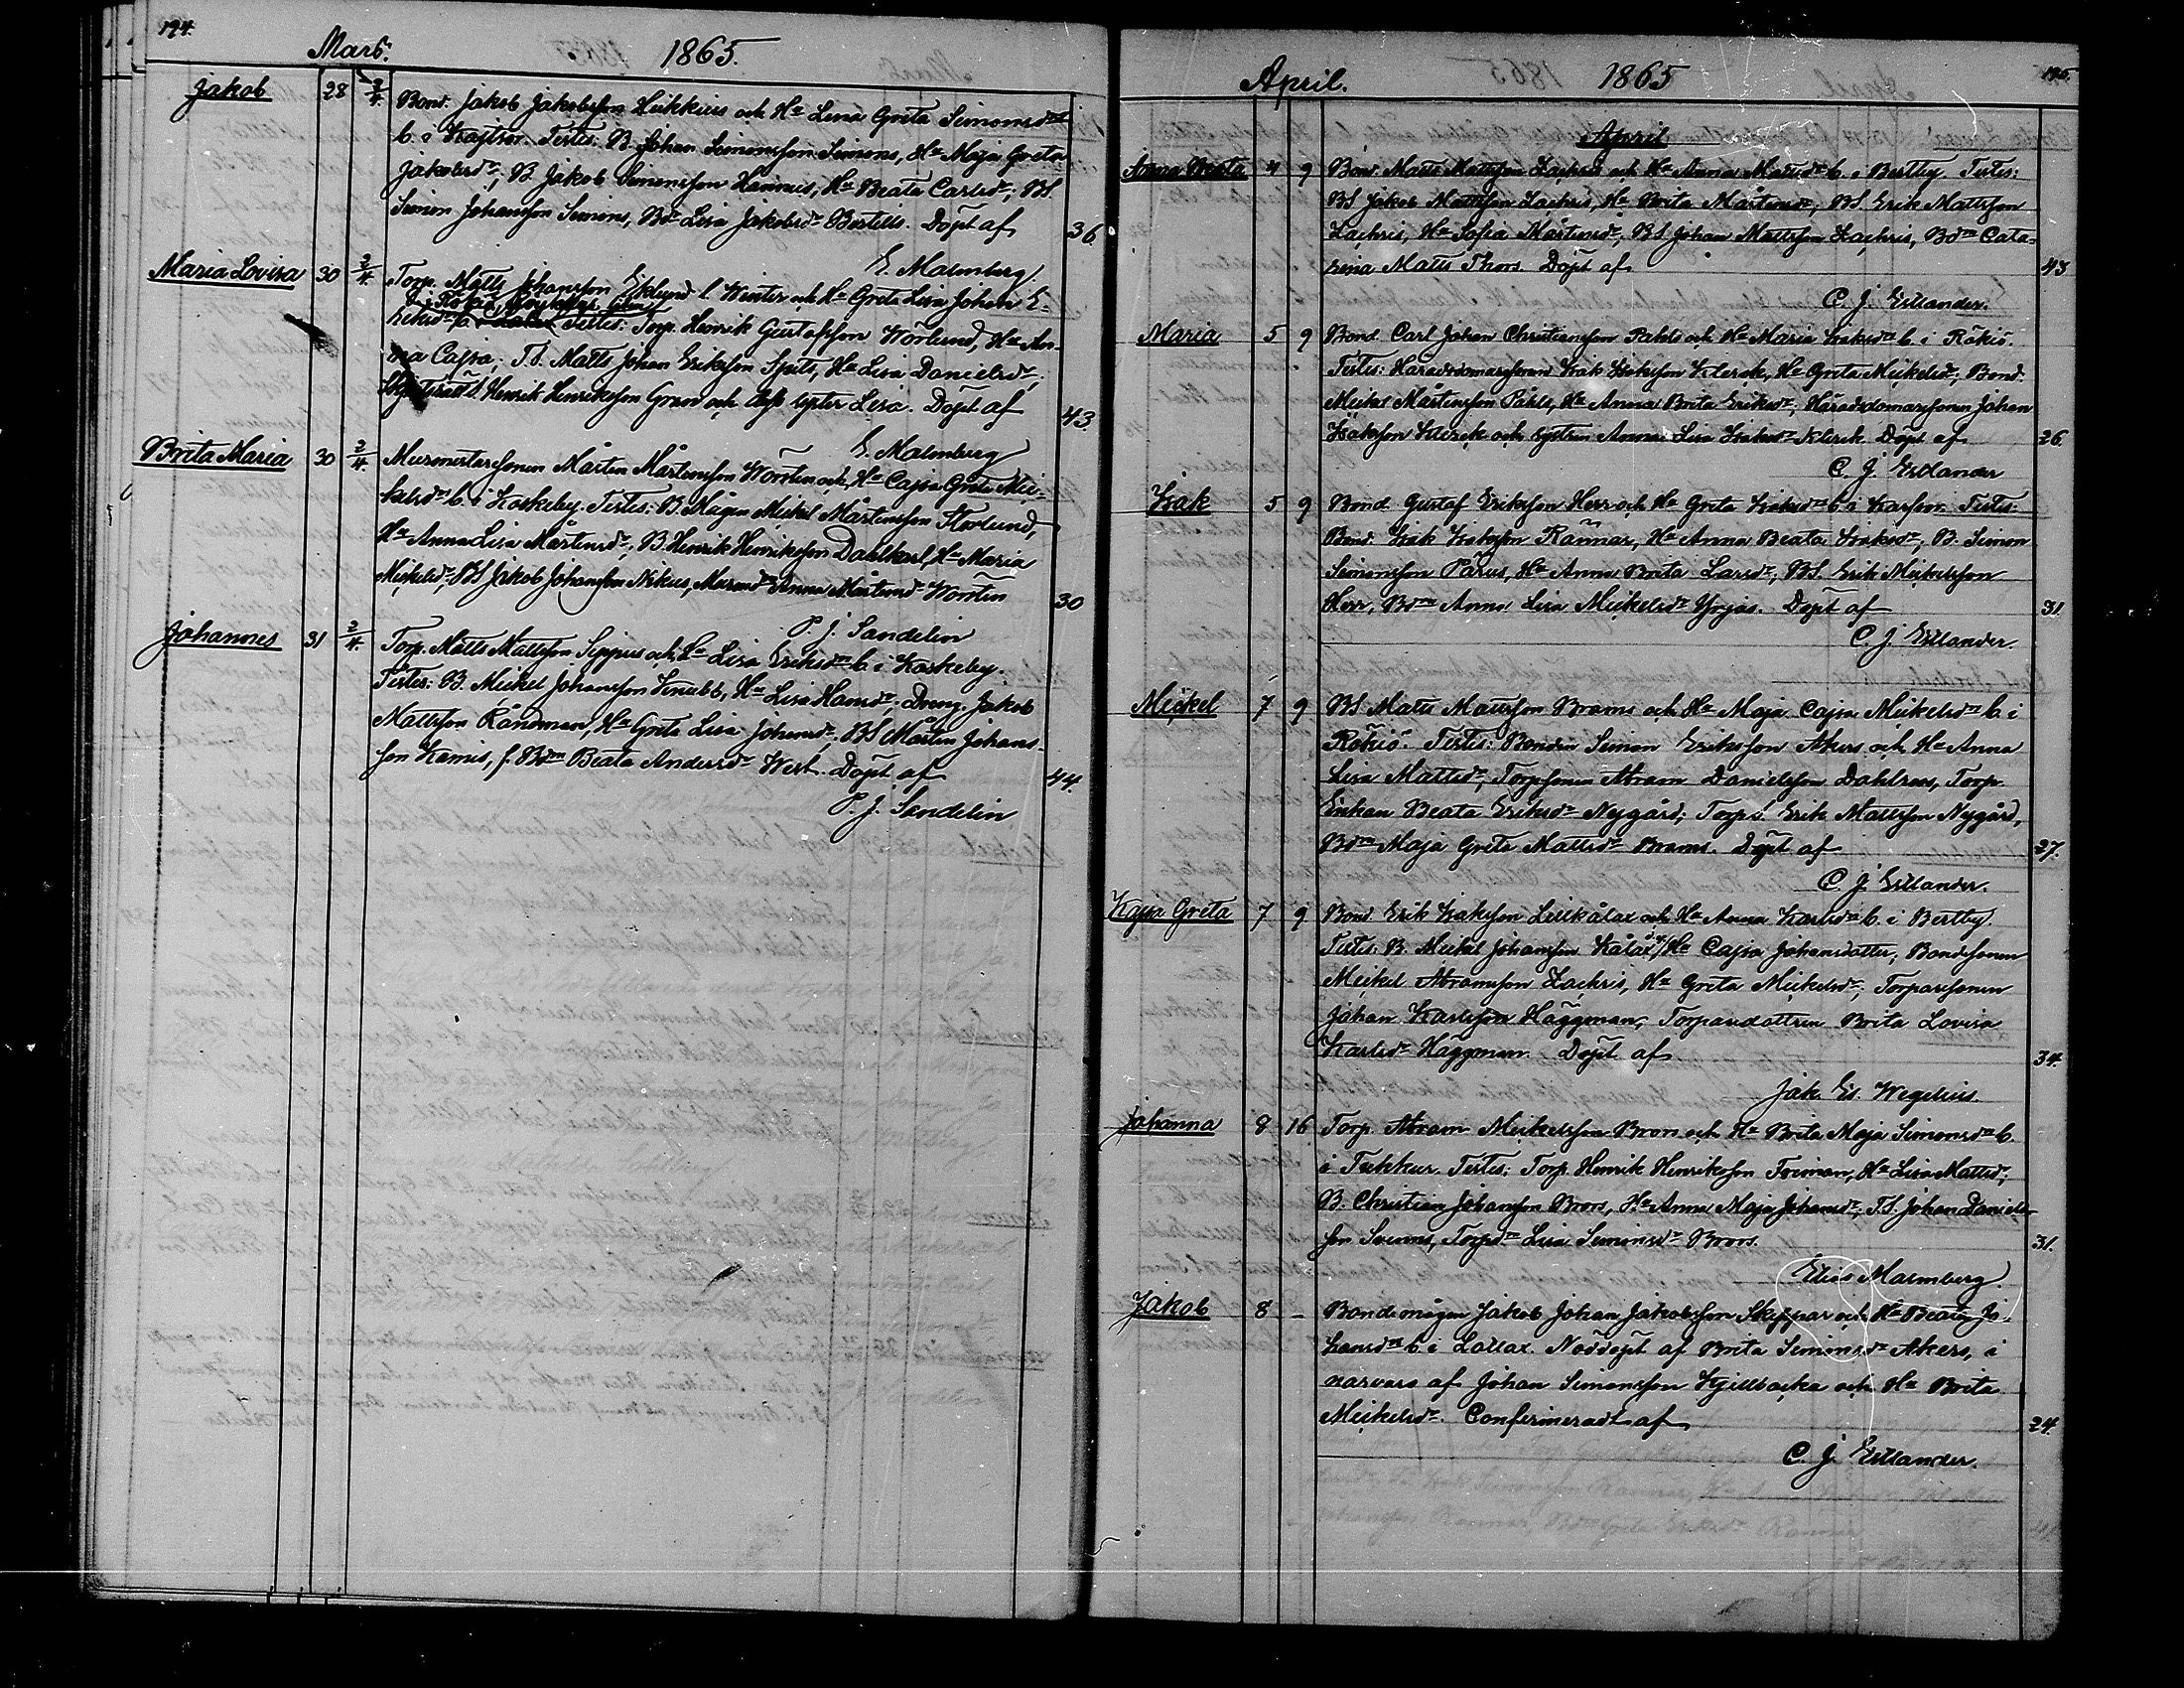 194.
Mars. 1865.
Jakob 28 2/4. Bond. Jakob Jakobsson Heikkius och Hu Lena Greta Simonsdr
b. i Kaitsor. Testes: B. Johan Simonsson Simons, Hu Maja Greta
Jakobsdr, B. Jakob Simonsson Hannus, Hu Beata Carlsdr; BS.
Simon Johansson Simons, Bdr Lisa Jakobsdr Bertills. Döpt af 36
E. Malmberg.
Maria Lovisa 30 2/4. Torp. Matts Johansson Eklund l. Winter och Hu Greta Lisa Johan E-
i Rökiö
riksdr b. Testes: Torp. Henrik Gustafsson Norlund, Hu An-
na Cajsa; T.S. Matts Johan Eriksson Spits, Hu Lisa Danielsdr;
Henrik Henriksson Gran och dess syster Lisa. Döpt af 43.
E. Malmberg
Brita Maria 30 2/4. Murmestaresonen Mårten Mårtensson Worsten och Hu Cajsa Greta Mic-
kelsdr b. i Koskeby. Testes: B. Mågen Mickel Mårtensson Florlund,
Hu Anna Lisa Mårtensdr, B. Henrik Henriksson Dahlkarl, Hu Maria
Mickelsdr, BS Jakob Johansson Nikus, Anna Mårtensdr Worsten 30
P. J. Sandelin
Johannes 31 2/4. Torp. Matts Mattsson Sippus och Hu Lisa Eriksdr b. i Koskeby.
Testes: B. Mickel Johansson Knubb, Hu Lisa Hansdr, Dreng. Jakob
Mattsson Råndman, Hu Greta Lisa Johansdr, BS Mårten Johans-
son Kamis, f. Bdr Beata Andersdr West. Döpt af 44.
P. J. Sandelin
195.
April. 1865
April
Anna Beata 4 9 Bond. Matts Mattsson Zachris och Hu Anna Mattsdr b. i Bertby. Testes:
BS Jakob Mattsson Zachris, Hu Brita Mårtensdr; BS. Erik Mattsson
Zachris, Hu Sofia Mårtensdr; BS Johan Mattsson Zachris, Bdr Cata-
rina Matts Thors. Döpt af 43
C. J. Estlander.
Maria 5 9 Bond. Carl Johan Christiansson Påhls och Hu Maria Isaksdr b. i Rökiö.
Testes: Häradsdomaresonen Isak Isaksson Klerck, Hu Greta Mickelsdr; Bond.
Mickel Mårtensson Påhls, Hu Anna Brita Eriksdr; Häradsdomaresonen Johan
Isaksson Klerck och systern Anna Lisa Isaksdr Klerck. Döpt af 26.
C. J. Estlander
Isak 5 9 Bond. Gustaf Eriksson Herr och Hu Greta Isaksdr b. i Karfsor. Testes:
Bond. Isak Isaksson Rännar, Hu Anna Beata Isaksdr; B. Simon
Simonsson Parus, Hu Anna Brita Larsdr; BS. Erik Mickelsson
Herr, Bdr Anna Lisa Mickelsdr Yrjas. Döpt af 31
C. J. Estlander.
Mickel 7 9 BS Matts Mattsson Brams och Hu Maja Cajsa Mickelsdr b. i
Rökiö. Testes: Bonden Simon Eriksson Akers och Hu Anna
Lisa Mattsdr; Torpsonen Abram Danielsson Dahlroos, Torp.
Enkan Beata Eriksdr Nygård; Torps. Erik Mattsson Nygård,
Bdr Maja Greta Mattsdr Brams. Döpt af 27.
C. J. Estlander.
Kajsa Greta 7 9 Bond. Erik Isaksson Lillkålax och Hu Anna Karlsdr b. i Bertby.
Testes: B. Mickel Johansson Kålax, Hu Cajsa Johansdotter; Bondsonen
Mickel Abramsson Zachris, Hu Greta Mickelsdr; Torparesonen
Johan Karlsson Häggman, Torparedottren Brita Lovisa
Karlsdr Häggman. Döpt af 34.
Jak. Es. Wegelius.
Johanna 8 16 Torp. Abram Mickelsson Brors och Hu Brita Maja Simonsdr b.
i Tuckur. Testes: Torp. Henrik Henriksson Freiman, Hu Lisa Mattsdr;
B. Christian Johansson Brors, Hu Anna Maja Johansdr; T.S. Johan Daniels-
son Svenns, Torpdr Lisa Simonsdr Brors. 31.
Elias Malmberg.
Jakob 8 – Bondemågen Jakob Johan Jakobsson Skeppar och Hu Beata Jo-
hansdr b. i Lotlax. Nöddöpt af Brita Simonsdr Akers, i
närvaro af Johan Simonsson Kjellbacka och Hu Brita
Mickelsdr. Confirmeradt af 24.
C. J. Estlander.